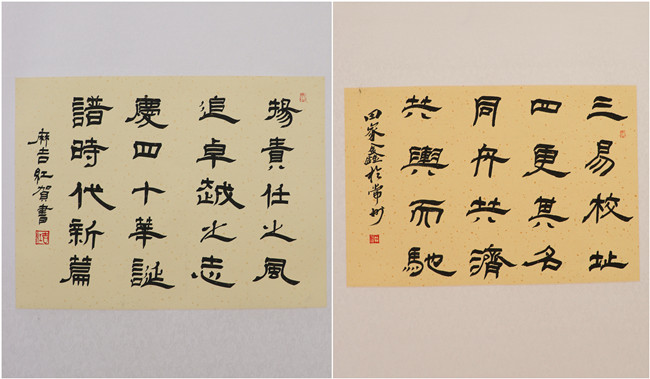 揚責任之風
追卓越之志
慶四十華誕
譜時代新篇
麻吉紅賀書
三易校址
四更其名
同舟共濟
共輿而馳
田家鑫於常州